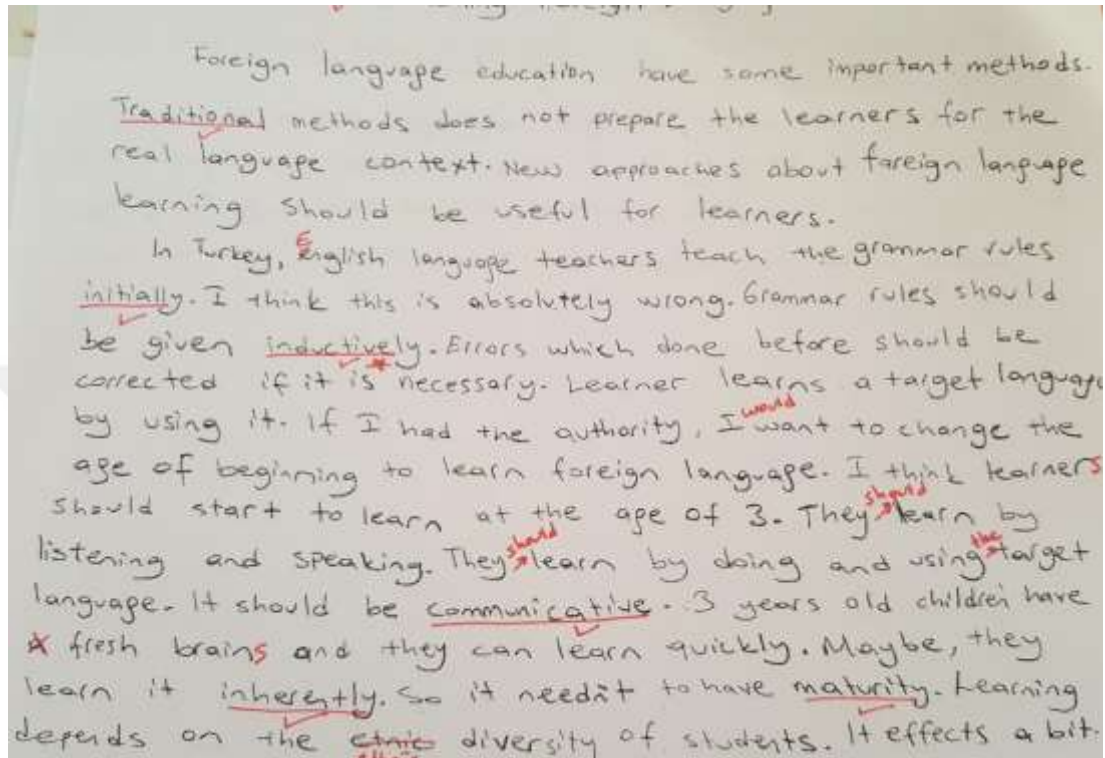 Foreign language education have some important methods.
Traditional methods does not prepare the learners for the
real language context. New approaches about foreign language
learning should be useful for learners.
In Turkey, English language teachers teach the grammar rules
initially. I think this is absolutely wrong. Grammar rules should
be given inductively. Errors which done before should be
corrected if it is necessary. Learner learns a target language
by using it. If I had the authority, I would want to change the
age of beginning to learn foreign language. I think learners
should start to learn at the age of 3. They should learn by
listening and speaking. They should learn by doing and using the target
language. It should be communicative. 3 years old children have
fresh brains and they can learn quickly. Maybe, they
learn it inherently. So it needn't to have maturity. Learning
depends on the etnic diversity of students. It effects a bit.